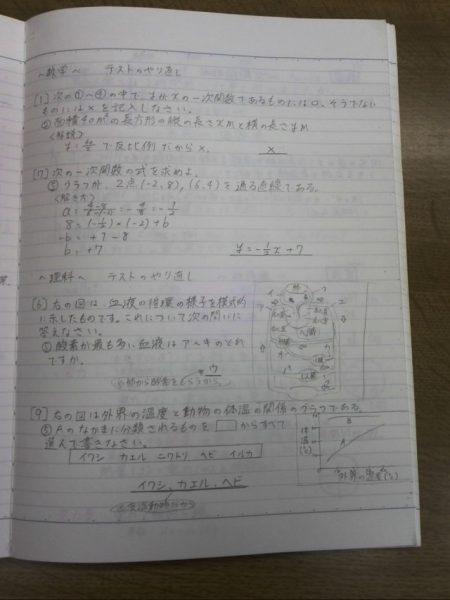 ~数学~ テストのやり直し
[1] 次の①~④の中で、yがxの一次関数であるものには○、そうでない
ものには×を記入しなさい。
面積40m²の長方形の縦の長さxmと横の長さym
<解説>
で反比例だから×。 ×
[7] 次の一次関数の式を求めよ。
⑤ グラフが、2点(-2,8),(6,4)を通る直線である。
<解き方>
8=(-1/2)×(-2)+b
-b=+1-8
b=+7 y=-1/2x+7
~理科~ テストのやり直し
[6] 右の図は、血液の循環の様子を模式的
に示したものです。これについて次の問いに
答えなさい。
酸素が最も多い血液はア~キのどれ
ですか。
ウ
肺から酸素をもらうから。
[9] 右の図は外界の温度と動物の体温の関係のグラフである。
Aのなかまに分類されるものを□からすべて
選んで書きなさい。
イワシ カエル ニワトリ ヘビ イルカ
イワシ、カエル、ヘビ
変温動物だから
体温(℃)
B
A
外界の温度(℃)